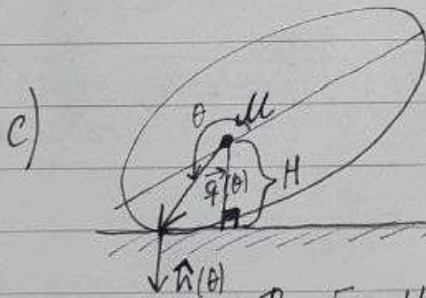 c)
θ
M
q⃗(θ)
H
n̂(θ)